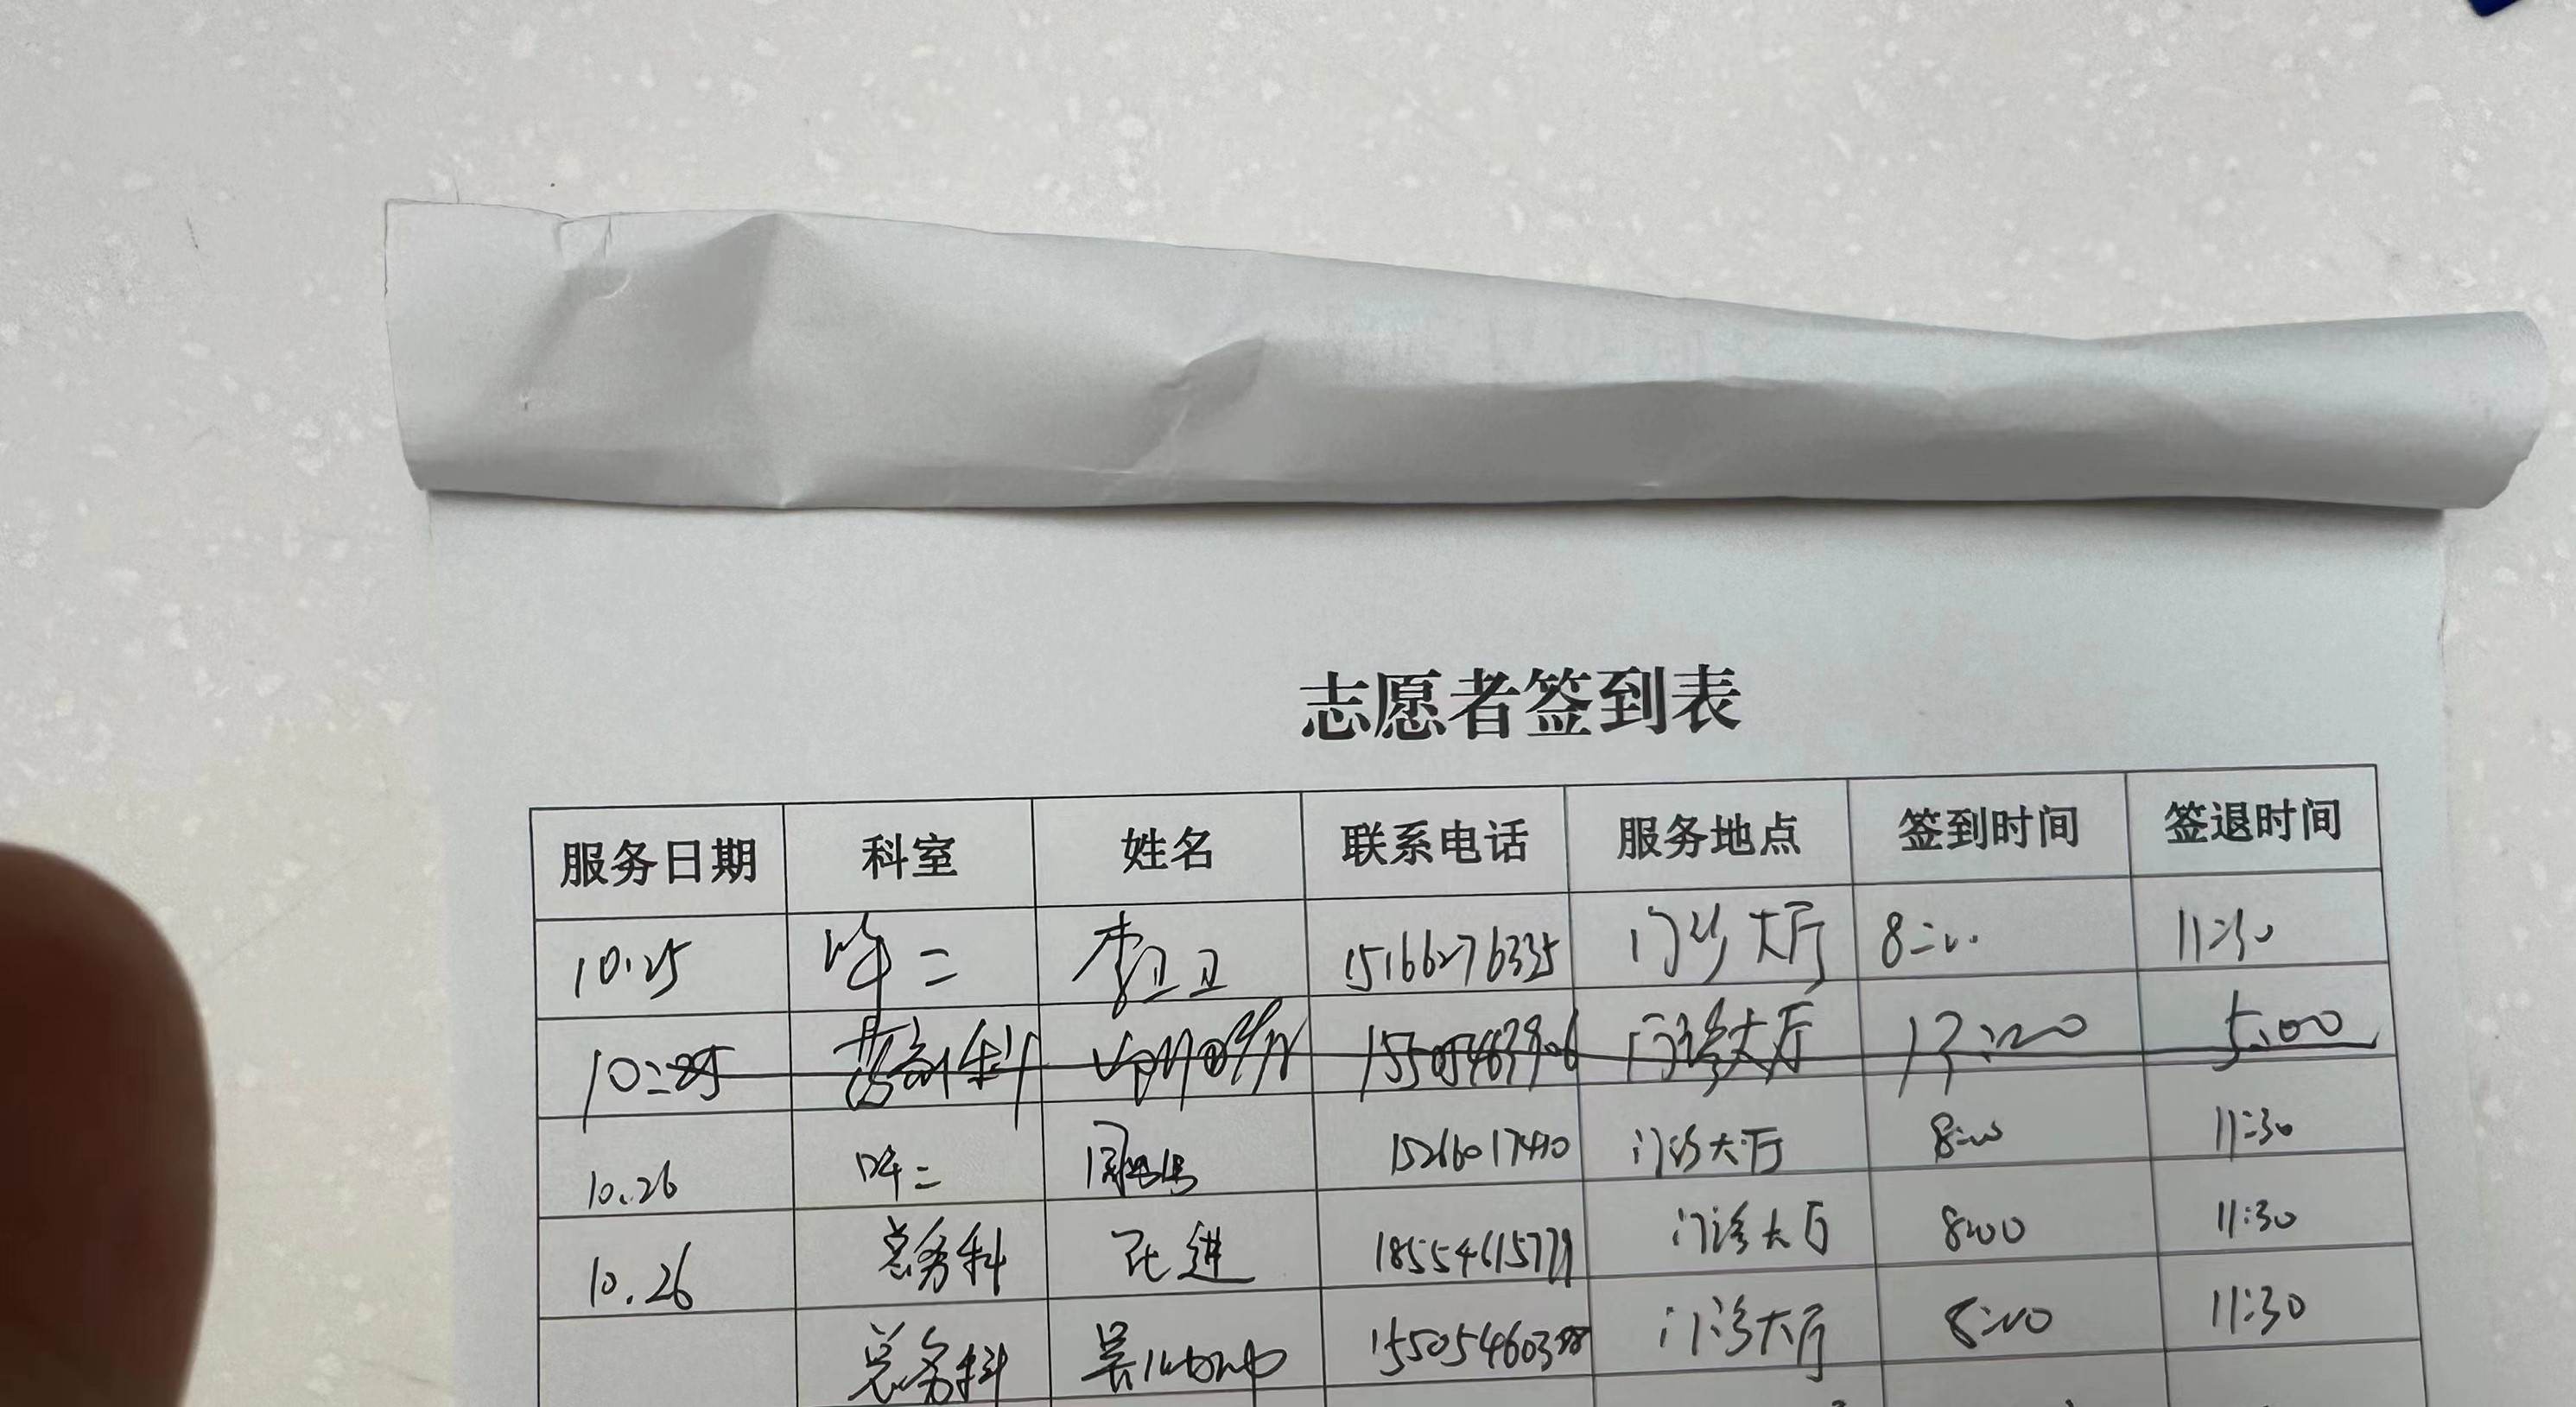 志愿者签到表
服务日期 科室 姓名 联系电话 服务地点 签到时间 签退时间
10.25 二 李卫卫 15166276335 门诊大厅 8:00 11:30
10:25 门诊大厅 5:00
10.26 二 15266017490 门诊大厅 8:00 11:30
10.26 总务科 进 18554615779 门诊大厅 8:00 11:30
总务科 吴 门诊大厅 8:00 11:30